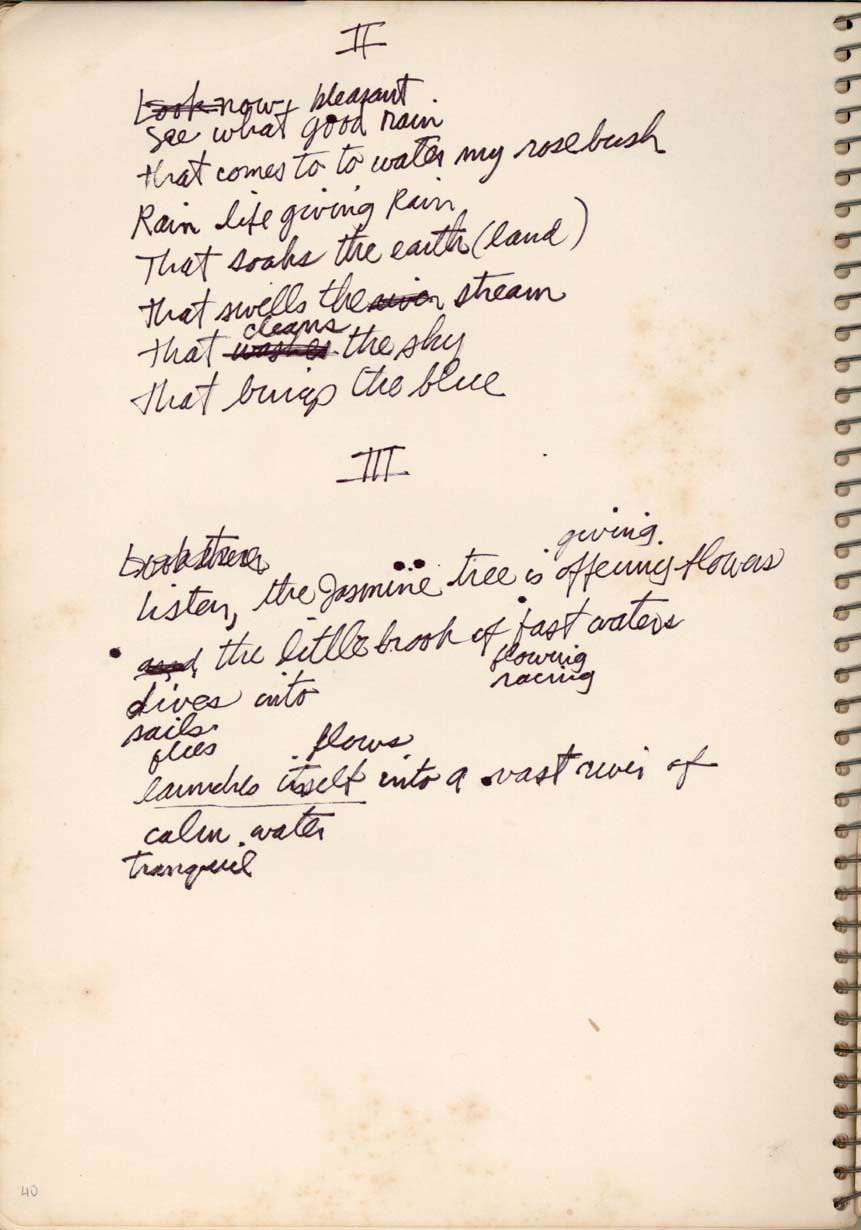 II
Look now, pleasant
See what good rain
that comes to to water my rose bush
Rain life giving Rain
That soaks the earth (land)
that swells the river stream
cleans
that washes the sky
that brings the blue
III
giving
Look there
listen, the Jasmine tree is offering flowers
and, the little brook of fast waters
flowing
dives into racing
sails
flies flows
launches itself into a vast river of
calm water
tranquil
40